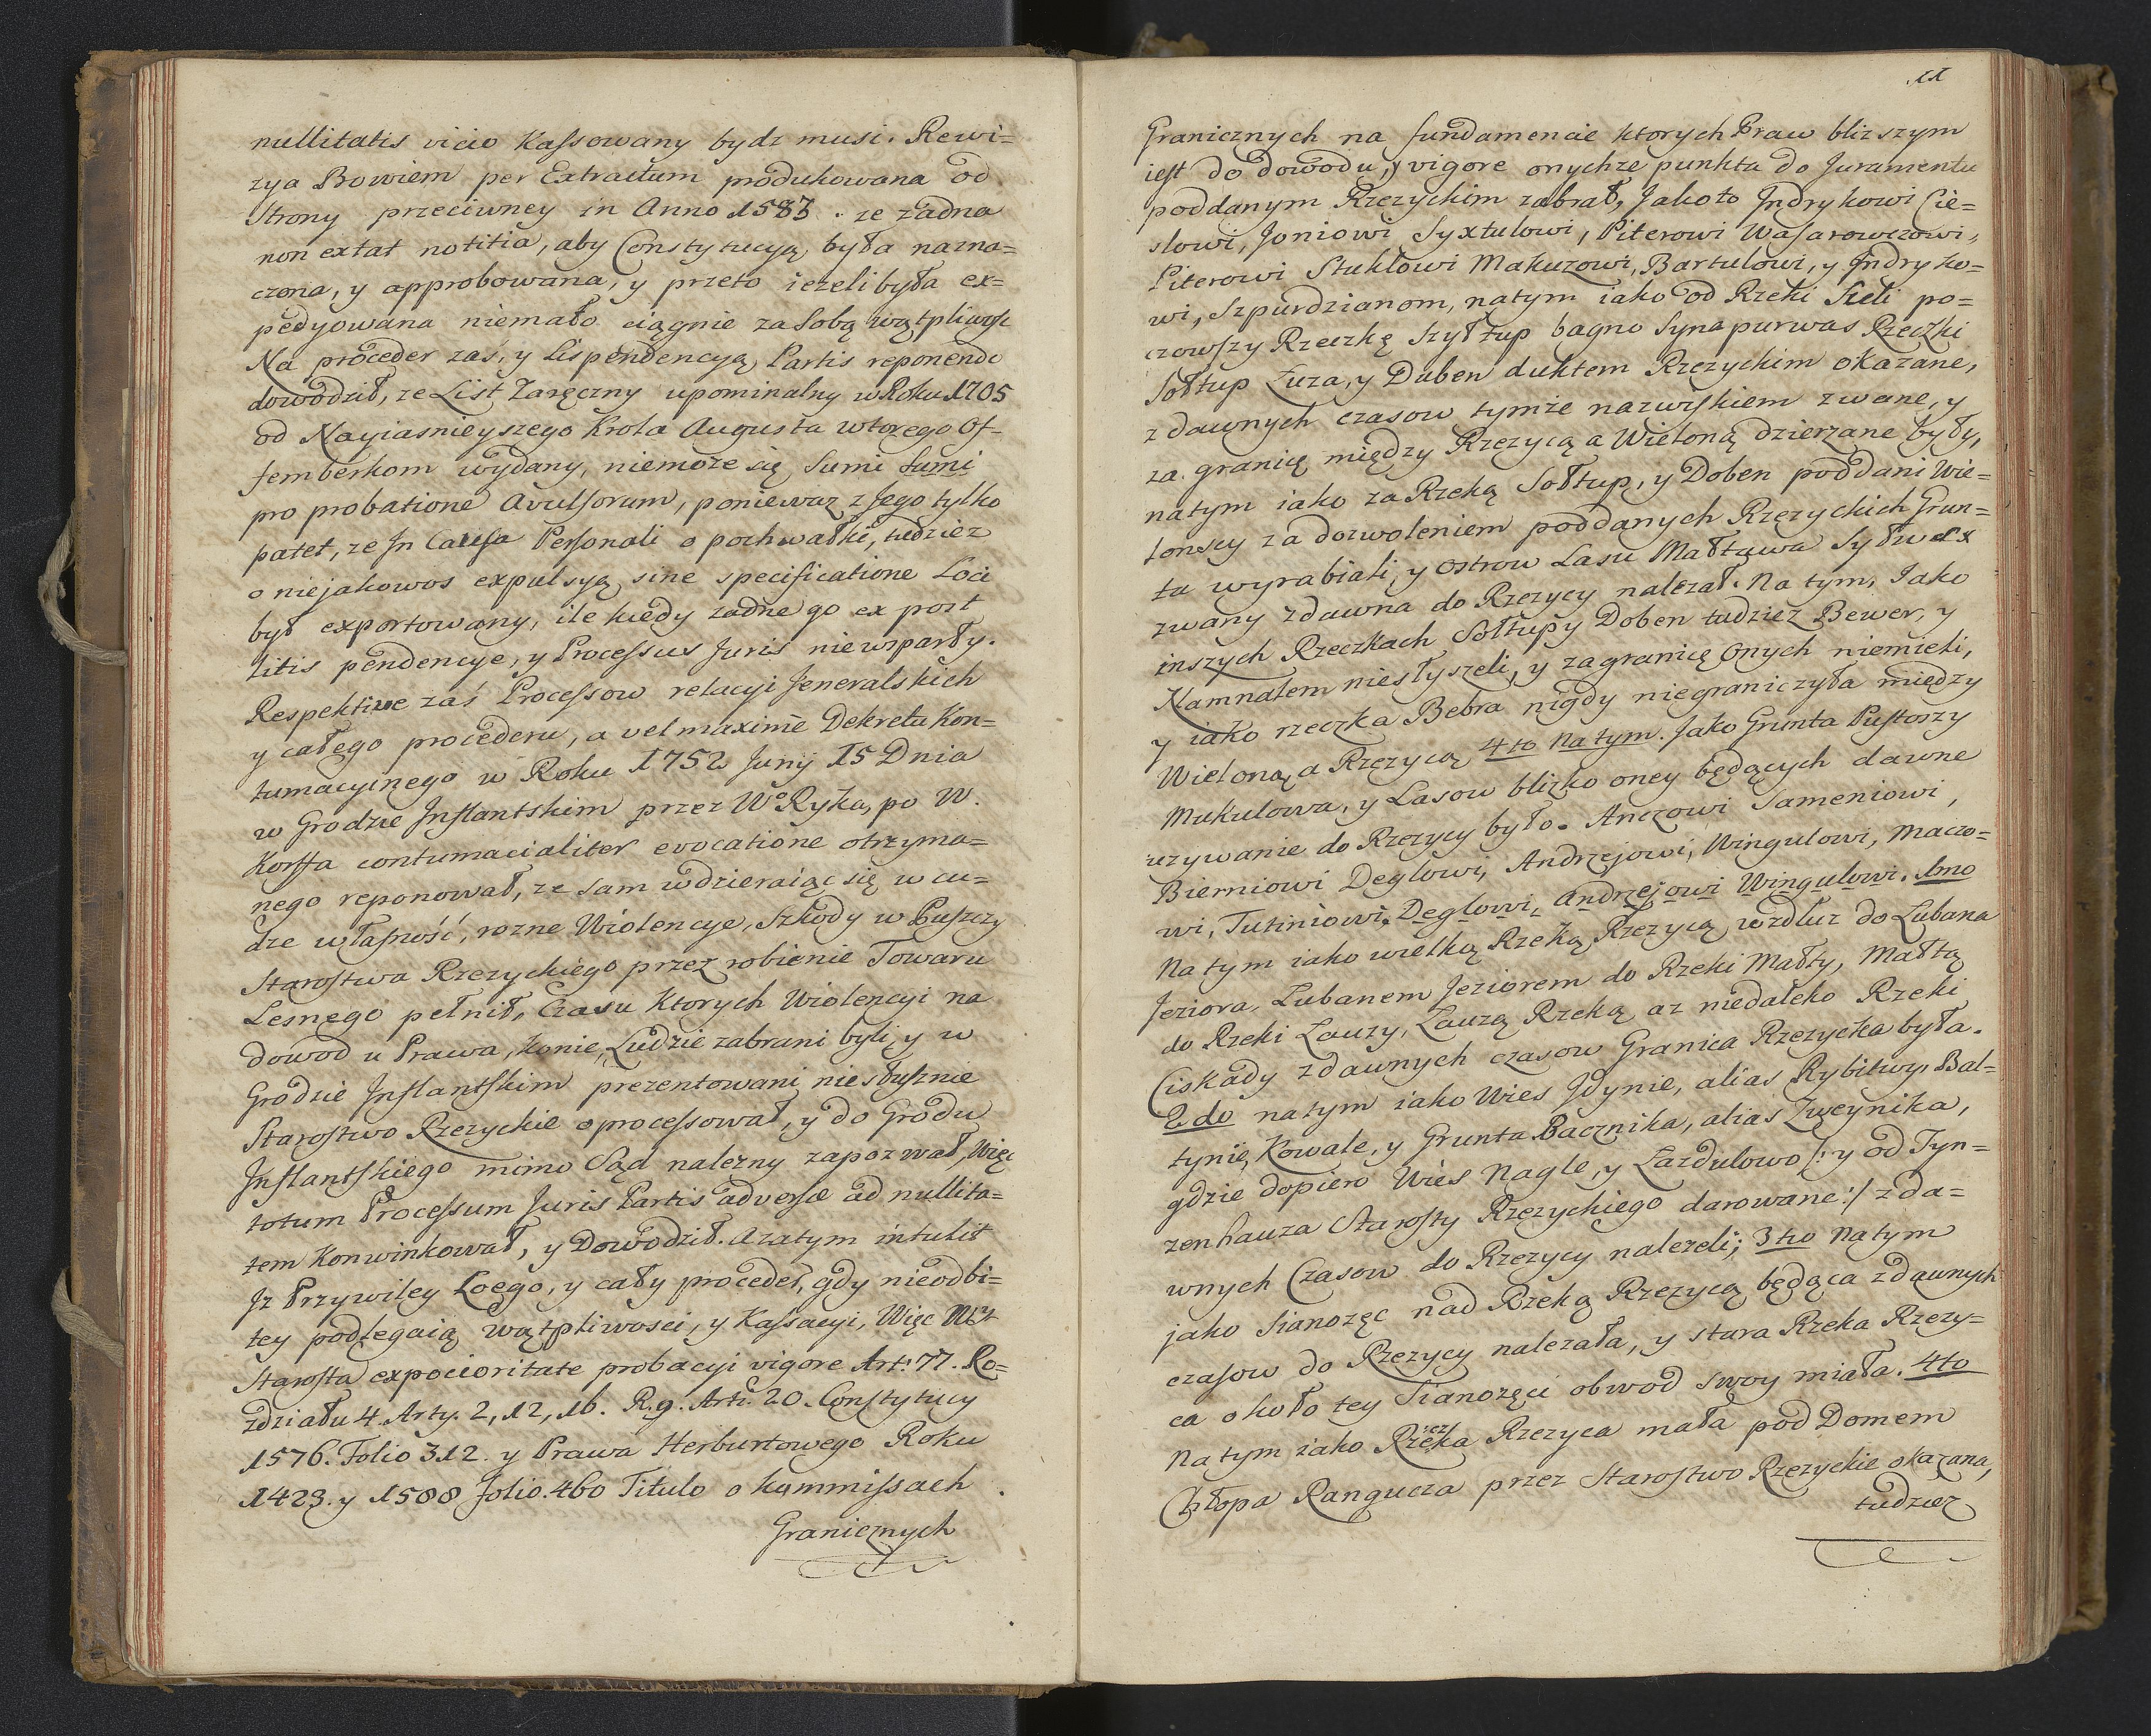 nullitatis vicio Kassowany bydz musi. Rewi=
zya Bowiem per Extractum produkowana od
Strony przeciwney in Anno 1583. ze żadna
non extat notitia, aby Constytucyą była nazna=
czona, y approbowana, y przeto ieżeli była ex=
pedyowana niemało ciągnie za Sobą wątpliwość
Na proceder zaś, y Lispendencyą Partis reponendo
dowodził, ze List Zaręczny upominalny w Roku 1705
od Nayiasnieyszego Krola Augusta wtorego Of=
femberkom wydany, niemoze się Sumi Sumi
pro probatione Avulsorum, poniewaz z Jego tylko
patet, ze Jn Causa Personali o pochwałki, tudziez
o niejakowos expulsyą sine specificatione Loci
był exportowany, ile kiedy zadne go ex post
litis pendencye, y Processus Juris niewsparły.
Respektive zaś Processow relacyi Jeneralskich
y całego procederu, a vel maxime Dekretu Kon=
tumacyinego w Roku 1752 Junij 15 Dnia
w Grodzie Jnflantskim przez Wo Ryka, po W.
Korffa contumacialiter evocatione otrzyma=
nego reponował, ze sam wdzieraiąc się w cu=
dze własność, rozne Violencye, Szkody w Puszczy
Starostwa Rzezyckiego przez robienie Towaru
Lesnego pełnił, Czasu Ktorych Violencyi na
dowod u Prawa, Konie, Ludzie zabrani byli, y w
Grodzie Jnflantskim prezentowani niesłusznie
Starostwo Rzezyckie oprocessował, y do Grodu
Jnflantskiego mimo Sąd nalezny zapozwał, Więc
totum Processum Juris Partis adversæ ad nullita=
tem Konwinkował, y Dowodził. Azatym intulit
Jz Przywiley Loego, y cały proceder, gdy nieodbi=
tey podlegaią wątpliwosci, y Kassacyi, Więc
Starosta expocioritate probacyi vigore Art: 77. Ro=
zdziału 4. Arty. 2, 12, 16. R. 9. Arti. 20. Constytucy
1576. Folio 312. y Prawa Herburtowego Roku
1423. y 1588 folio. 460 Titulo o kommissach
Granicznych
11
Granicznych na fundamencie ktorych Praw blizszym
iest do dowodu, y vigore onychze punkta do Juramentu
poddanym Rzezyckim zabrał, Jakoto Jndrykowi Cie=
slowi, Joniowi Syxtulowi, Piterowi Wasarowczowi,
Piterowi Stuklowi Makuzowi, Bartulowi, y Jndryko=
wi, Szpurdzianom, natym iako od Rzeki Sieli po=
czowszy Rzeczkę Szyłtup bagno Synapurwas Rzeczki
Sołtup Łuza, y Duben duktem Rzezyckim okazane,
z dawnych czasow tymże nazwiskiem zwane, y
za granicę między Rzezycą a Wieloną dzierzane były,
natym iako za Rzeką Sołtup, y Doben poddani Wie=
lonscy za dozwoleniem poddanych Rzezyckich Grun=
ta wyrabiali, y ostrow Lasu Małtawa
zwany zdawna do Rzezycy nalezał. Na tym, Jako
inszych Rzeczkach Sołtupy Doben tudziez Bewer, y
Kamnalem niesłyszeli, y zagranicę onych niemieli,
y iako rzeczka Bebra nigdy niegraniczyła między
Wieloną, a Rzezycą 4to Na tym. Jako Grunta Pustoszy
Mukulowa, y Lasow blizko oney będących dawne
uzywanie do Rzezycy było. Anczowi Sameniowi,
Bierniowi Deglowi, Andrzejowi, Wingulowi, Maczo=
wi, Tutiniowi, Deglowi, Andrzejowi Wingulowi. 1mo
Na tym iako wielką Rzeką Rzezycą wzdłuz do Lubana
Jeziora, Lubanem Jeziorem do Rzeki Małty, Małtą
do Rzeki Lauzy, Lauzą Rzeką az niedaleko Rzeki
Ciskady zdawnych czasow Granica Rzezycka była.
2do natym iako Wies Jdynie, alias Rybitwy, Bal=
tynię, Kowale, y Grunta Bacznika, alias Zweynika,
gdzie dopiero Wies Nagle, y Łazdulowo /: y od Tyn=
zenhauza Starosty Rzezyckiego darowane :/ zda=
wnych Czasow do Rzezycy nalezeli; 3tio Natym
jako Sianozęc nad Rzeką Rzezycą będąca zdawnych
czasow do Rzezycy nalezała, y stara Rzeka Rzezy=
ca około tey Sianozęci obwod swoy miała. 4to
Na tym iako Rzeczka Rzezyca mała pod Domem
Chłopa Rangucza przez Starostwo Rzezyckie okazana,
tudziez